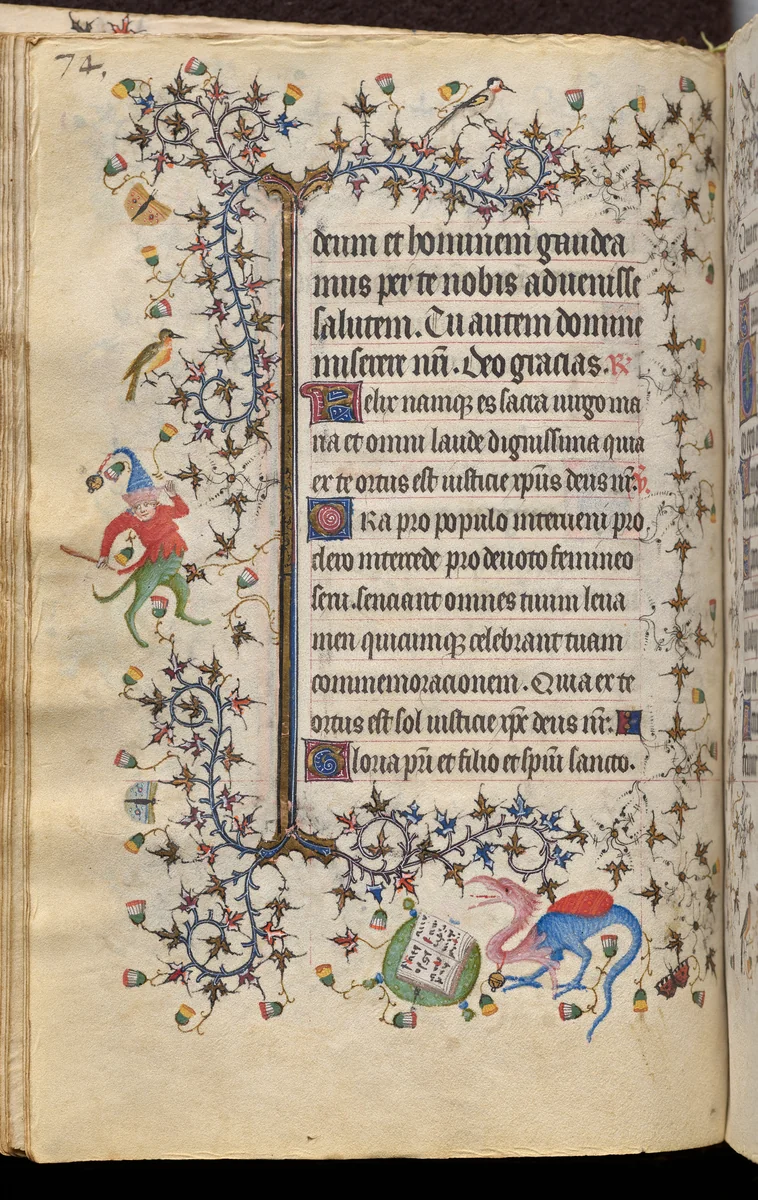 74.
deum et hominem gaudea
mus per te nobis aduenisse
salutem. Tu autem domine
miserere nr̄i. Deo gracias. R̸
Felix namqꝫ es sacra uirgo ma
ria et omni laude dignissima quia
ex te ortus est iusticie xp̄us deus nr̄. v̸.
Ora pro populo interueni pro
clero intercede pro deuoto femineo
sexu. senciant omnes tuum leua
men quicumqꝫ celebrant tuam
commemoracionem. Quia ex te
ortus est sol iusticie xp̄c deus nr̄.
Gloria pr̄i et filio et sp̄ui sancto.